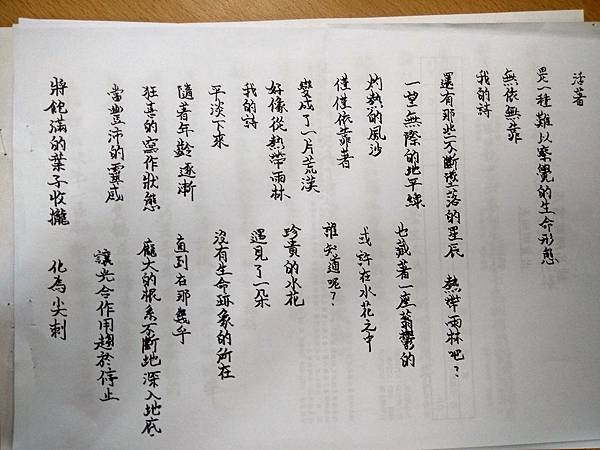 當豐沛的靈感
狂喜的寫作狀態
隨著年齡逐漸
平淡下來
我的詩
好像從熱帶雨林
變成了一片荒漠
僅僅依靠著
灼熱的風沙
一望無際的地平線
還有那些不斷墜落的星辰
我的詩
無依無靠
是一種難以察覺的生命形態
活著
將飽滿的葉子收攏 化為尖刺
讓光合作用趨於停止
龐大的根系不斷地深入地底
直到在那幾乎
沒有生命跡象的所在
遇見了一朵
珍貴的水花
誰知道呢?
或許在水花之中
也藏著一座蓊鬱的
熱帶雨林吧?